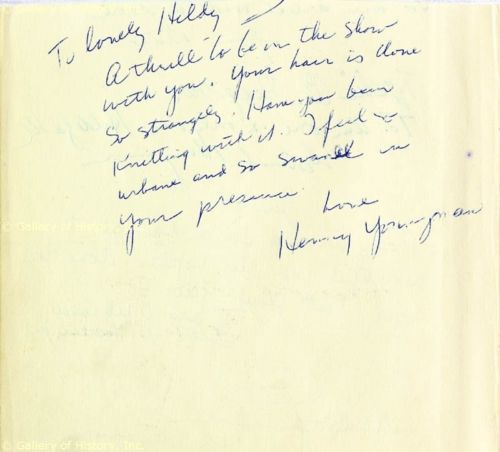 To lonely Hildy
A thrill to be in the show
with you. Your hair is done
so strangely. Have you been
Knitting with it. I feel so
urbane and so suave in
your presence.
Love
Henny Youngman
© Gallery of History, Inc.
© Gallery of History, Inc.